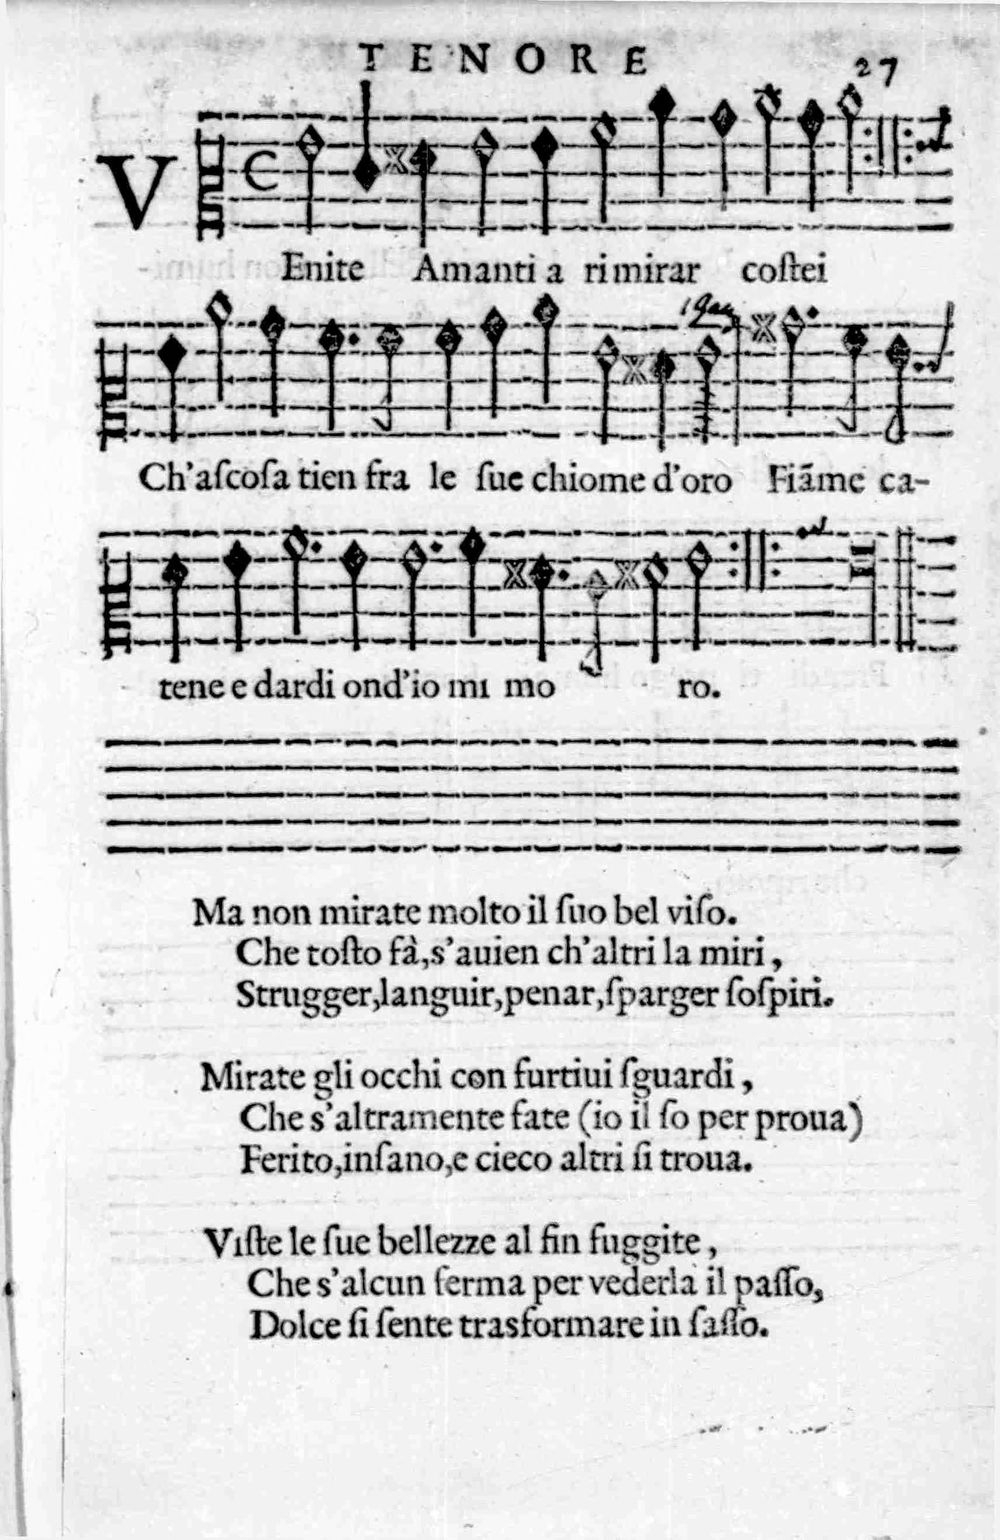 TENORE
27
VEnite Amanti a rimirar coſtei
Ch'aſcoſa tien fra le ſue chiome d'oro Fiãme ca-
tene e dardi ond'io mi mo ro.
Ma non mirate molto il ſuo bel viſo.
Che toſto fà,s'auien ch'altri la miri,
Strugger,languir,penar,ſparger ſoſpiri.
Mirate gli occhi con furtiui ſguardi,
Che s'altramente fate (io il ſo per proua)
Ferito,inſano,e cieco altri ſi troua.
Viſte le ſue bellezze al fin fuggite,
Che s'alcun ferma per vederla il paſſo,
Dolce ſi ſente trasformare in ſaſſo.